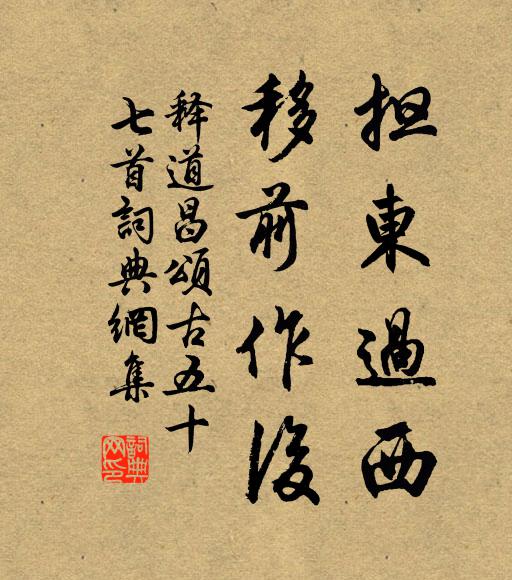 担東過西
移前作後
释道昌頌古五十
七首詞典網集
詞典網印